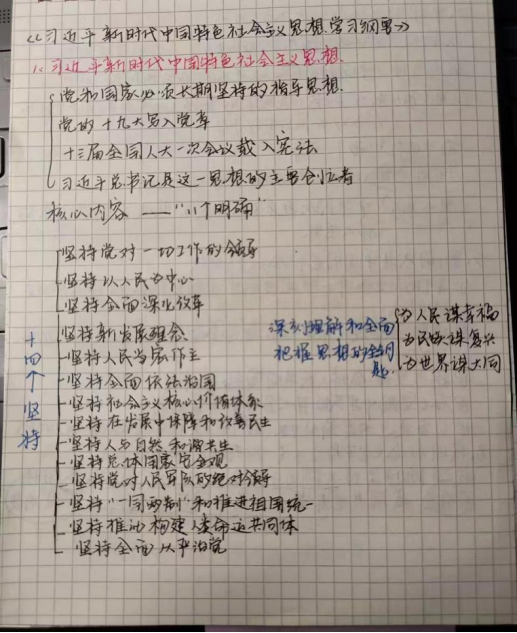 《习近平新时代中国特色社会主义思想学习纲要》
1.习近平新时代中国特色社会主义思想.
党和国家必须长期坚持的指导思想.
党的十九大写入党章
十三届全国人大一次会议载入宪法
习近平总书记是这一思想的主要创立者
核心内容——"八个明确"
十四个坚持
坚持党对一切工作的领导
坚持以人民为中心
坚持全面深化改革
坚持新发展理念
坚持人民当家作主
坚持全面依法治国
坚持社会主义核心价值体系
坚持在发展中保障和改善民生
坚持人与自然和谐共生
坚持总体国家安全观
坚持党对人民军队的绝对领导
坚持"一国两制"和推进祖国统一
坚持推动构建人类命运共同体
坚持全面从严治党
深刻理解和全面
把握思想的金钥
匙.
为人民谋幸福
为民族谋复兴
为世界谋大同